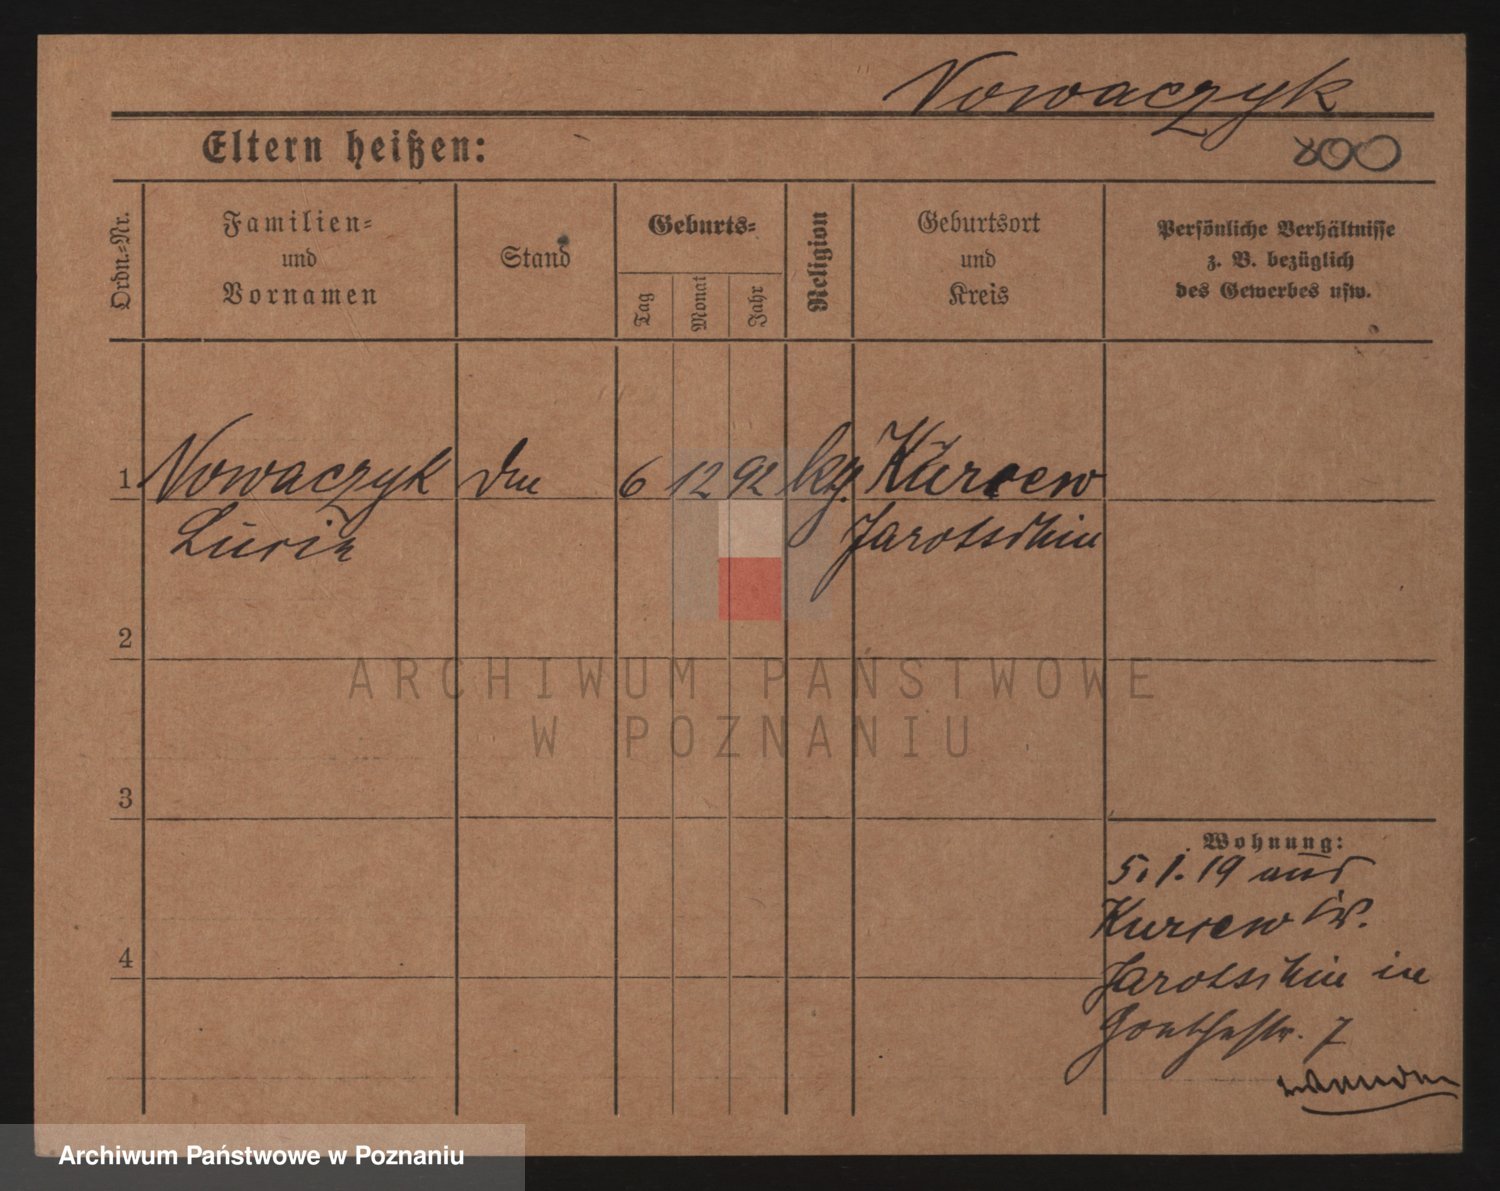 Nowaczyk
Eltern heißen:
800
Ordn.-Nr.
Familien-
und
Vornamen
Stand
Geburts-
Tag
Monat
Jahr
Religion
Geburtsort
und
Kreis
Persönliche Verhältnisse
z. B. bezüglich
des Gewerbes usw.
1 Nowaczyk 6 12 92 Kurcew
Jarotschin
2
3
4
Wohnung:
5.1.19 aus
Kurcew
Jarotschin in
Goethestr. 7
ARCHIWUM PAŃSTWOWE
W POZNANIU
Archiwum Państwowe w Poznaniu